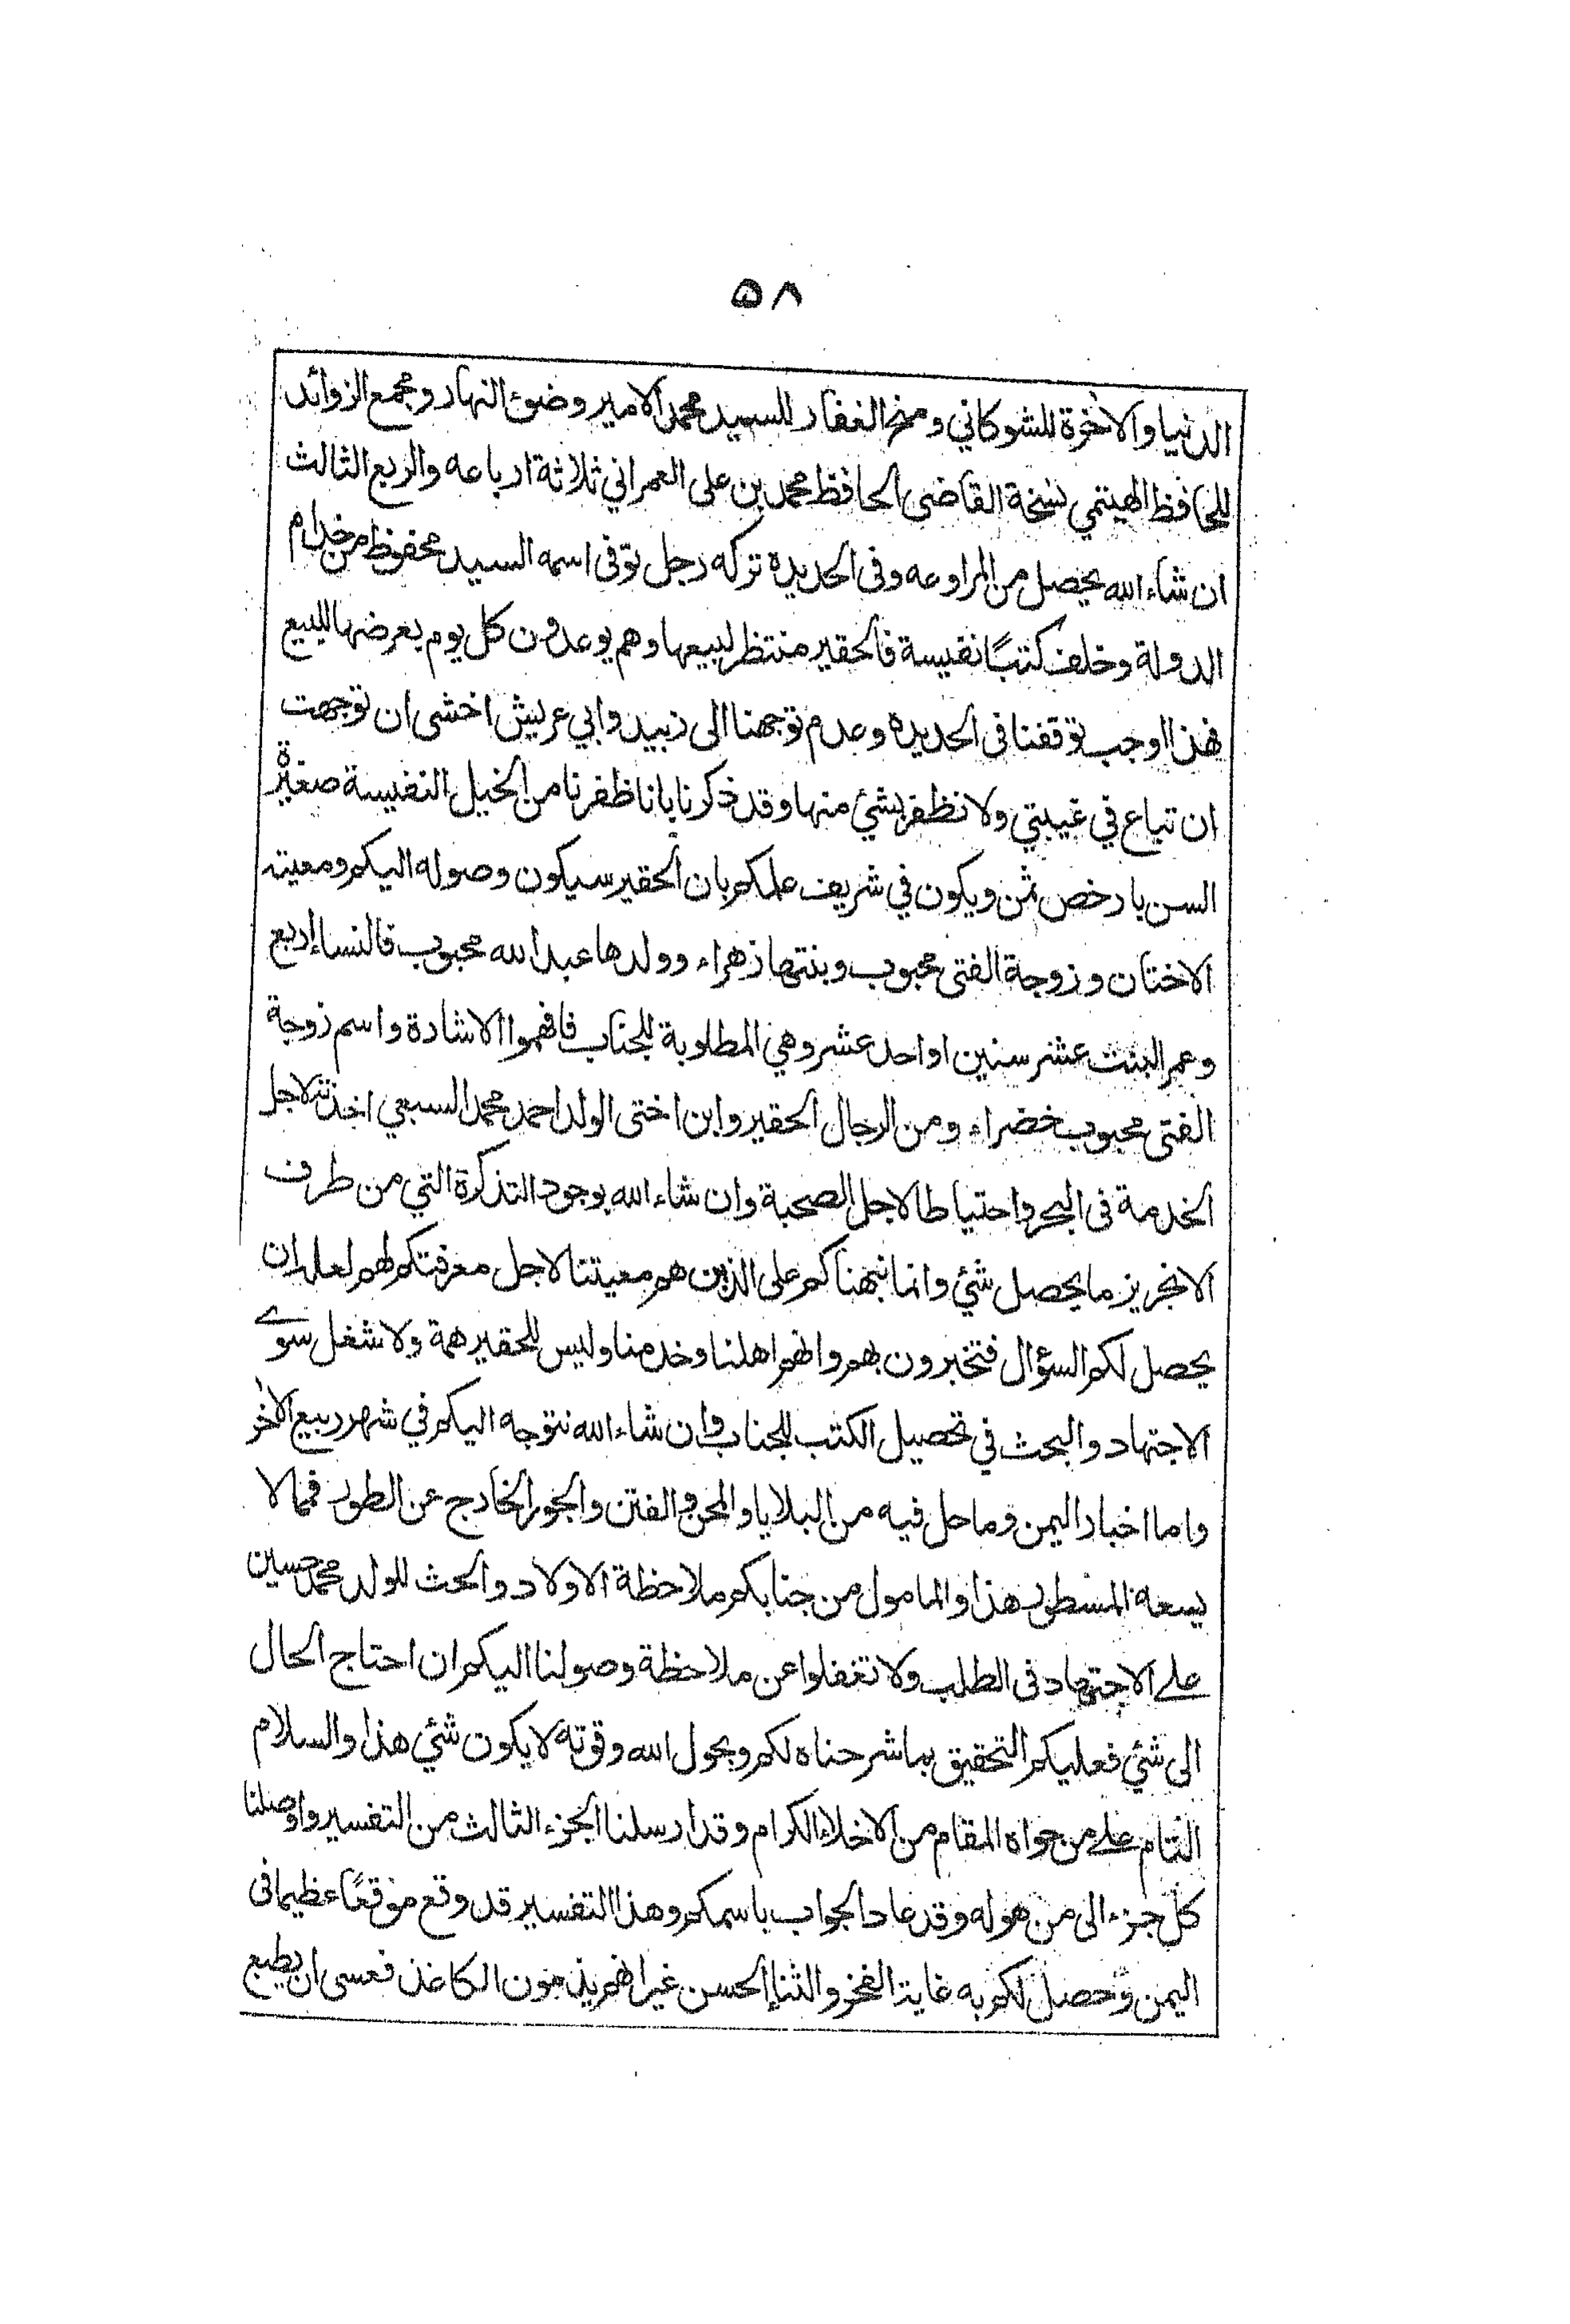 ٥٨
الدنيا والآخرة للشوكاني ومنح الغفار للسيد محمد الامير وضوء النهار ومجمع الزوائد
للحافظ الهيتمي نسخة القاضى الحافظ محمد بن على العمراني ثلاثة ارباعه والربع الثالث
ان شاء الله يحصل من المراوعه وفى الحديده تركه رجل توفى اسمه السيد محفوظ من خدام
الدولة وخلف كتبًا نفيسة فالحقير منتظر لبيعها وهم يوعدون كل يوم يعرضها للبيع
فهذا اوجب توقفنا فى الحديدة وعدم توجهنا الى زبيد وابي عريش اخشى ان توجهت
ان تباع في غيبتي ولا نظفر بشئ منها وقد ذكرنا بانا ظفرنا من الخيل النفيسة صغيرة
السن بارخص ثمن ويكون في شريف علمكم بان الحقير سيكون وصوله اليكم ومعيته
الاختان وزوجة الفتى محبوب وبنتها زهراء وولدها عبد الله محبوب فالنساء اربع
وعمر البنت عشر سنين او احد عشر وهي المطلوبة للجناب فافهموا الاشارة واسم زوجة
الفتى محبوب خضراء ومن الرجال الحقير وابن اختى الولد احمد محمد السبعي اخذته لاجل
الخدمة فى البحر واحتياطا لاجل الصحبة وان شاء الله بوجود التذكرة التي من طرف
الانجريز ما يحصل شئ وانما نبهناكم على الذين هم معيتنا لاجل معرفتكم لهم لعله ان
يحصل لكم السؤال فتخبرون بهم وانهم اهلنا وخدمنا وليس للحقير همة ولا شغل سوى
الاجتهاد والبحث في تحصيل الكتب للجناب وان شاء الله نتوجه اليكم في شهر ربيع الآخر
واما اخبار اليمن وما حل فيه من البلايا والمحن والفتن والجور الخارج عن الطور فمما لا
يسعه المسطور هذا والمامول من جنابكم ملاحظة الاولاد والحث للولد محمد حسين
على الاجتهاد فى الطلب ولا تغفلوا عن ملاحظة وصولنا اليكم ان احتاج الحال
الى شئ فعليكم التحقيق بما شرحناه لكم وبحول الله وقوته لا يكون شئ هذا والسلام
التام على من حواه المقام من الاخلاء الكرام وقد ارسلنا الجزء الثالث من التفسير واوصلنا
كل جزء الى من هو له وقد عاد الجواب باسمكم وهذا التفسير قد وقع موقعًا عظيما فى
اليمن وحصل لكم به غاية الفخر والثناء الحسن غير انهم يذمون الكاغذ فعسى ان يطبع